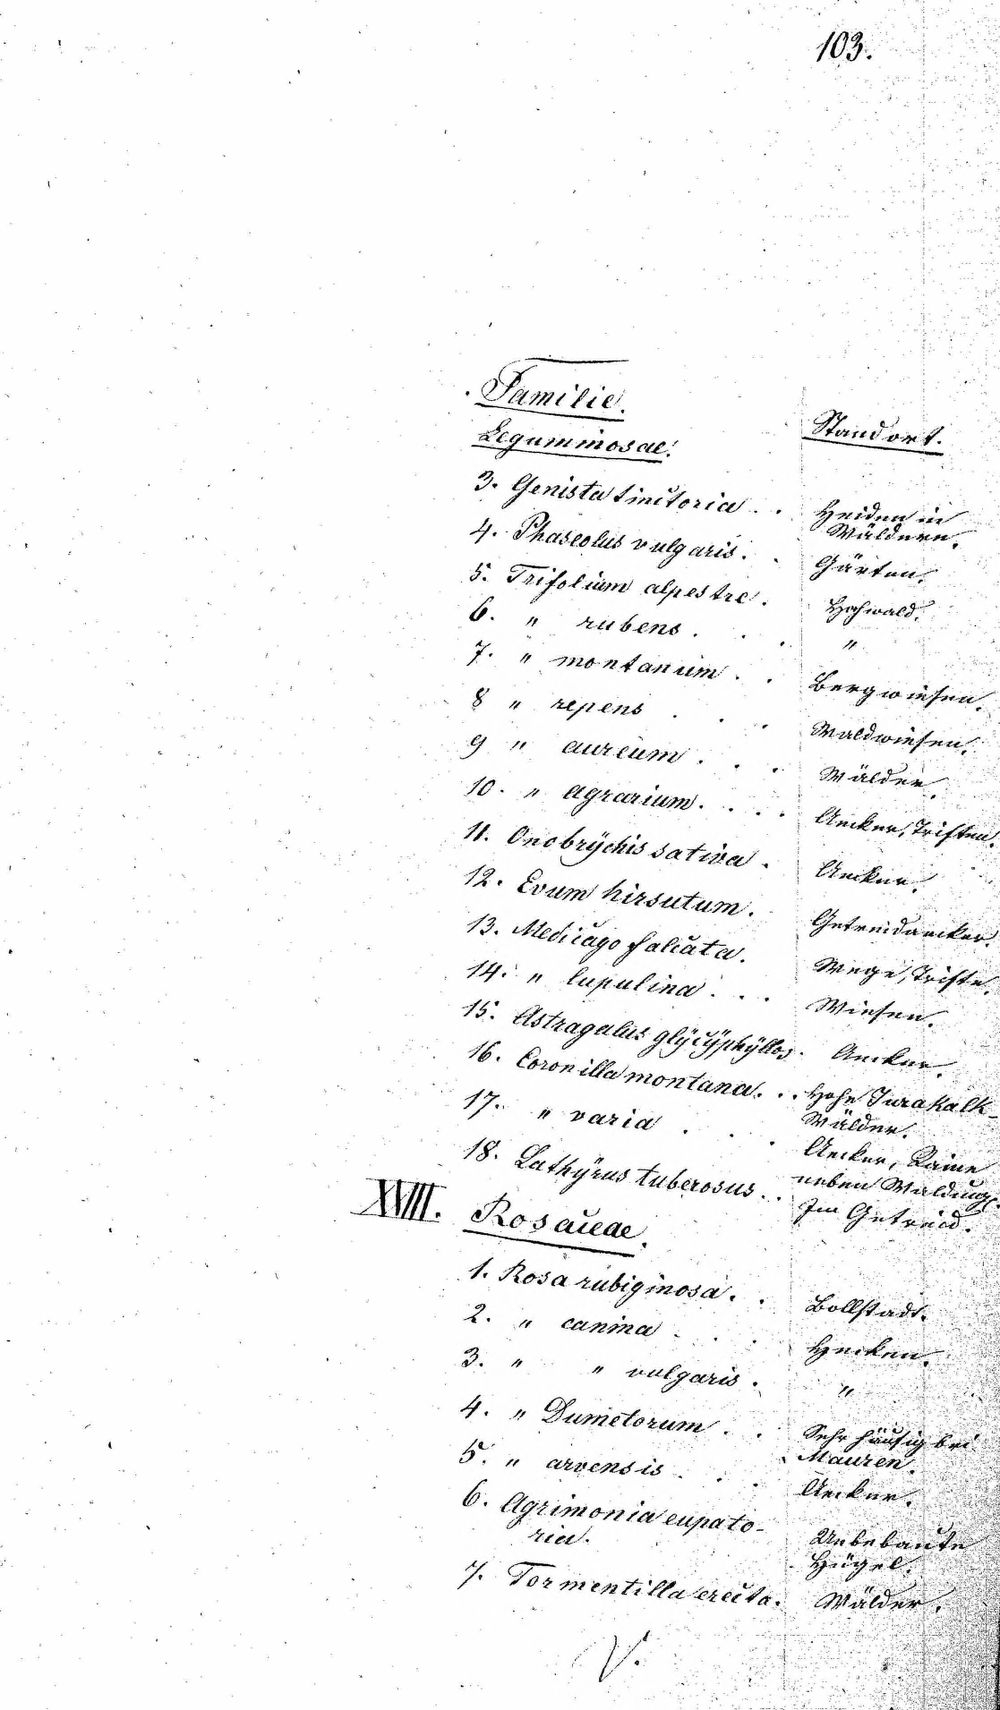 103.
Familie. Standort.
Leguminosae.
3. Genista tinctoria . . Heiden in
Wäldern.
4. Phaseolus vulgaris. . Gärten.
5. Trifolium alpestre . Hahwald.
6. " rubens . . . "
7. " montanum . . Bergwiesen.
8 " repens . . . Waldwiesen.
9 " aureum . . . Wälder.
10. " agrarium. . . . Aecker, Triften.
11. Onobrÿchis sativa . Aecker.
12. Evum hirsutum. Getreidaecker.
13. Medicago falcata. Wege, Trifte.
14. " lupulina . . . Wiesen.
15. Astragalus glÿcÿphÿllos. Aecker.
16. Coronilla montana. . . Hohe Jurakalk-
Wälder.
17. " varia . . . Aecker, Raine
neben Waldung.
18. Lathÿrus tuberosus . . Im Getreid.
XVIII. Rosaceae.
1. Rosa rubiginosa . . Bollstadt.
2. " canina . . . Hecken.
3. " " vulgaris . "
4. " Dumetorum . . Sehr häufig bei
Mauren.
5. " arvensis . . . Aecker.
6. Agrimonia eupato- Unbebaute
ria. Hügel.
7. Tormentilla erecta. Wälder.
V.